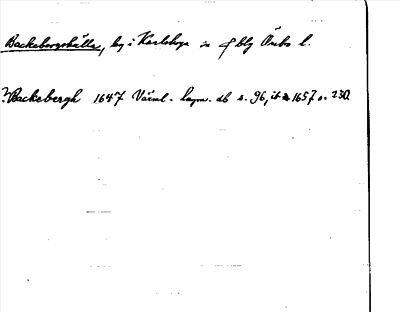 Backeborgshälla, by i Karlskoga sn o blg Örebro l.
? Backebergh 1647 Värml. lagm. db s. 96, ib 1657 s. 230.